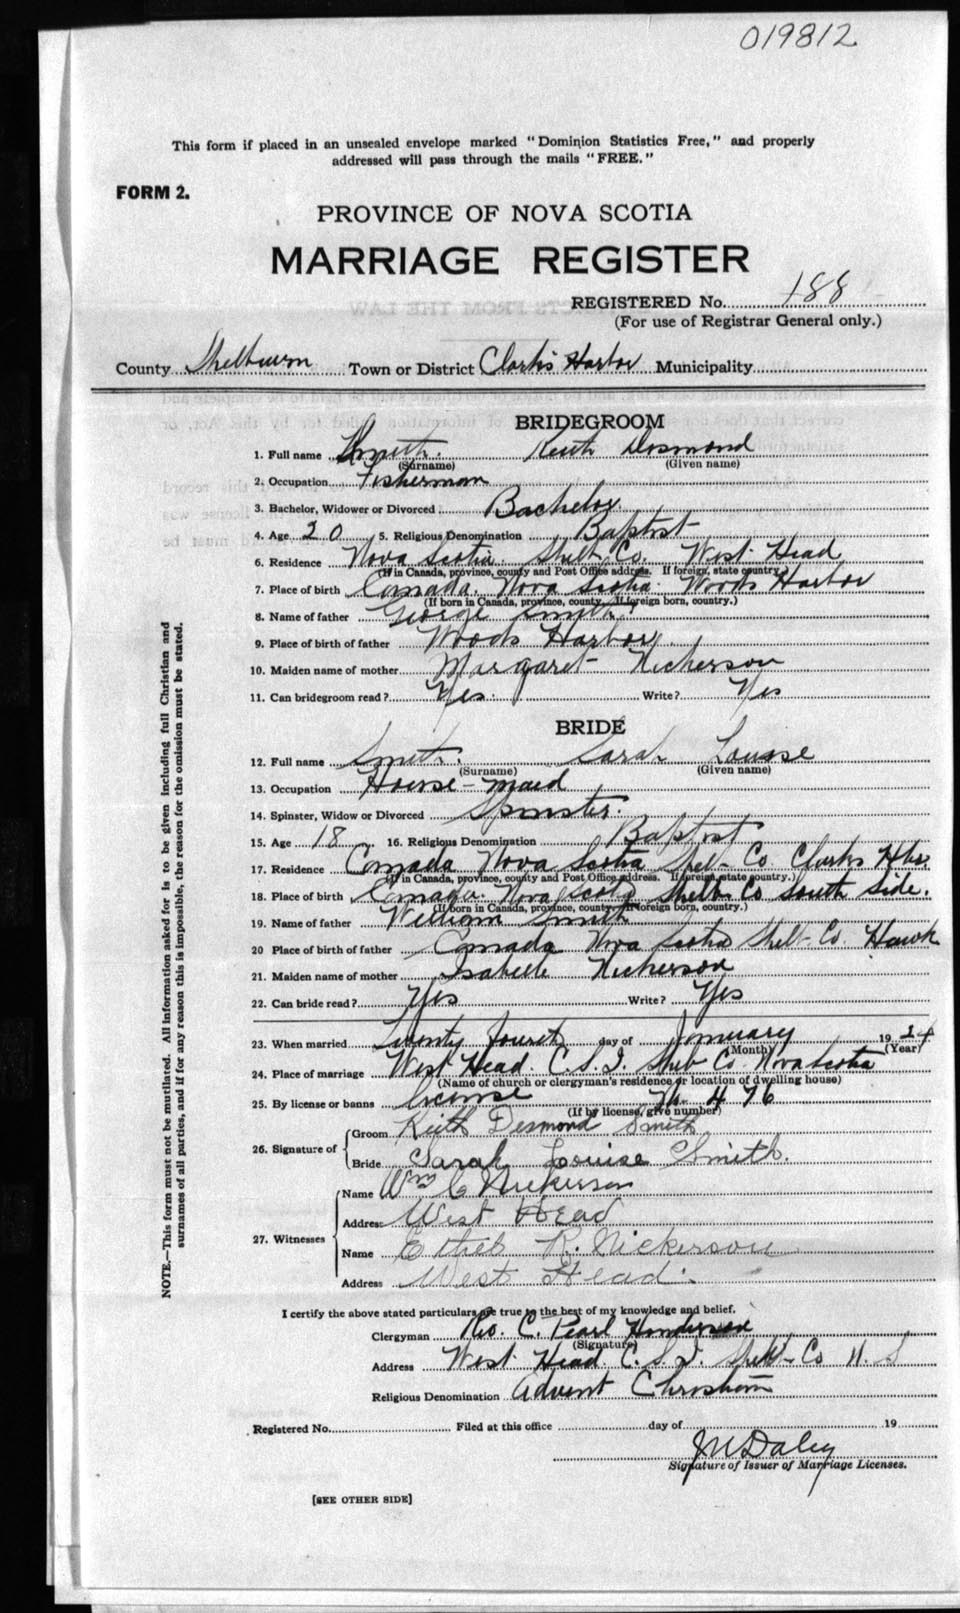 019812
This form if placed in an unsealed envelope marked "Dominion Statistics Free," and properly
addressed will pass through the mails "FREE."
FORM 2.
PROVINCE OF NOVA SCOTIA
MARRIAGE REGISTER
REGISTERED No. 188
(For use of Registrar General only.)
County Shelburn Town or District Clark's Harbor Municipality
BRIDEGROOM
1. Full name Smith. Keith Desmond
(Surname) (Given name)
2. Occupation Fisherman
3. Bachelor, Widower or Divorced Bachelor.
4. Age 20 5. Religious Denomination Baptist
6. Residence Nova Scotia Shelb. Co. West Head
(If in Canada, province, county and Post Office address. If foreign, state country.)
7. Place of birth Canada. Nova Scotia. Woods Harbor
(If born in Canada, province, county. If foreign born, country.)
8. Name of father George Smith
9. Place of birth of father Woods Harbor.
10. Maiden name of mother Margaret Nickerson
11. Can bridegroom read? Yes. Write? Yes
BRIDE
12. Full name Smith. Sarah Louise
(Surname) (Given name)
13. Occupation House-maid
14. Spinster, Widow or Divorced Spinster.
15. Age 18 16. Religious Denomination Baptist
17. Residence Canada Nova Scotia Shel- Co. Clarks Hbr.
(If in Canada, province, county and Post Office address. If foreign, state country.)
18. Place of birth Canada. Nova Scotia Shelb Co South Side.
(If born in Canada, province, county. If foreign born, country.)
19. Name of father William Smith
20 Place of birth of father Canada Nova Scotia Shelb- Co. Hawk
21. Maiden name of mother Isabelle Nickerson
22. Can bride read? Yes Write? Yes
23. When married Twenty fourth day of January 1924
(Month) (Year)
24. Place of marriage West Head. C.S.I. Shelb Co. Nova Scotia
(Name of church or clergyman's residence or location of dwelling house)
25. By license or banns license No. 476
(If by license, give number)
26. Signature of Groom Keith Desmond Smith
Bride Sarah Louise Smith.
27. Witnesses Name Wm C Nickerson
Address West Head
Name Ethel R. Nickerson
Address West Head.
I certify the above stated particulars are true to the best of my knowledge and belief.
Clergyman Rev. C. Pearl Henderson
(Signature)
Address West Head C.S.I. Shelb- Co N.S
Religious Denomination Advent Christian
Registered No. Filed at this office day of 19
Signature of Issuer of Marriage Licenses.
[SEE OTHER SIDE]
NOTE.—This form must not be mutilated. All information asked for is to be given including full Christian and
surnames of all parties, and if for any reason this is impossible, the reason for the omission must be stated.